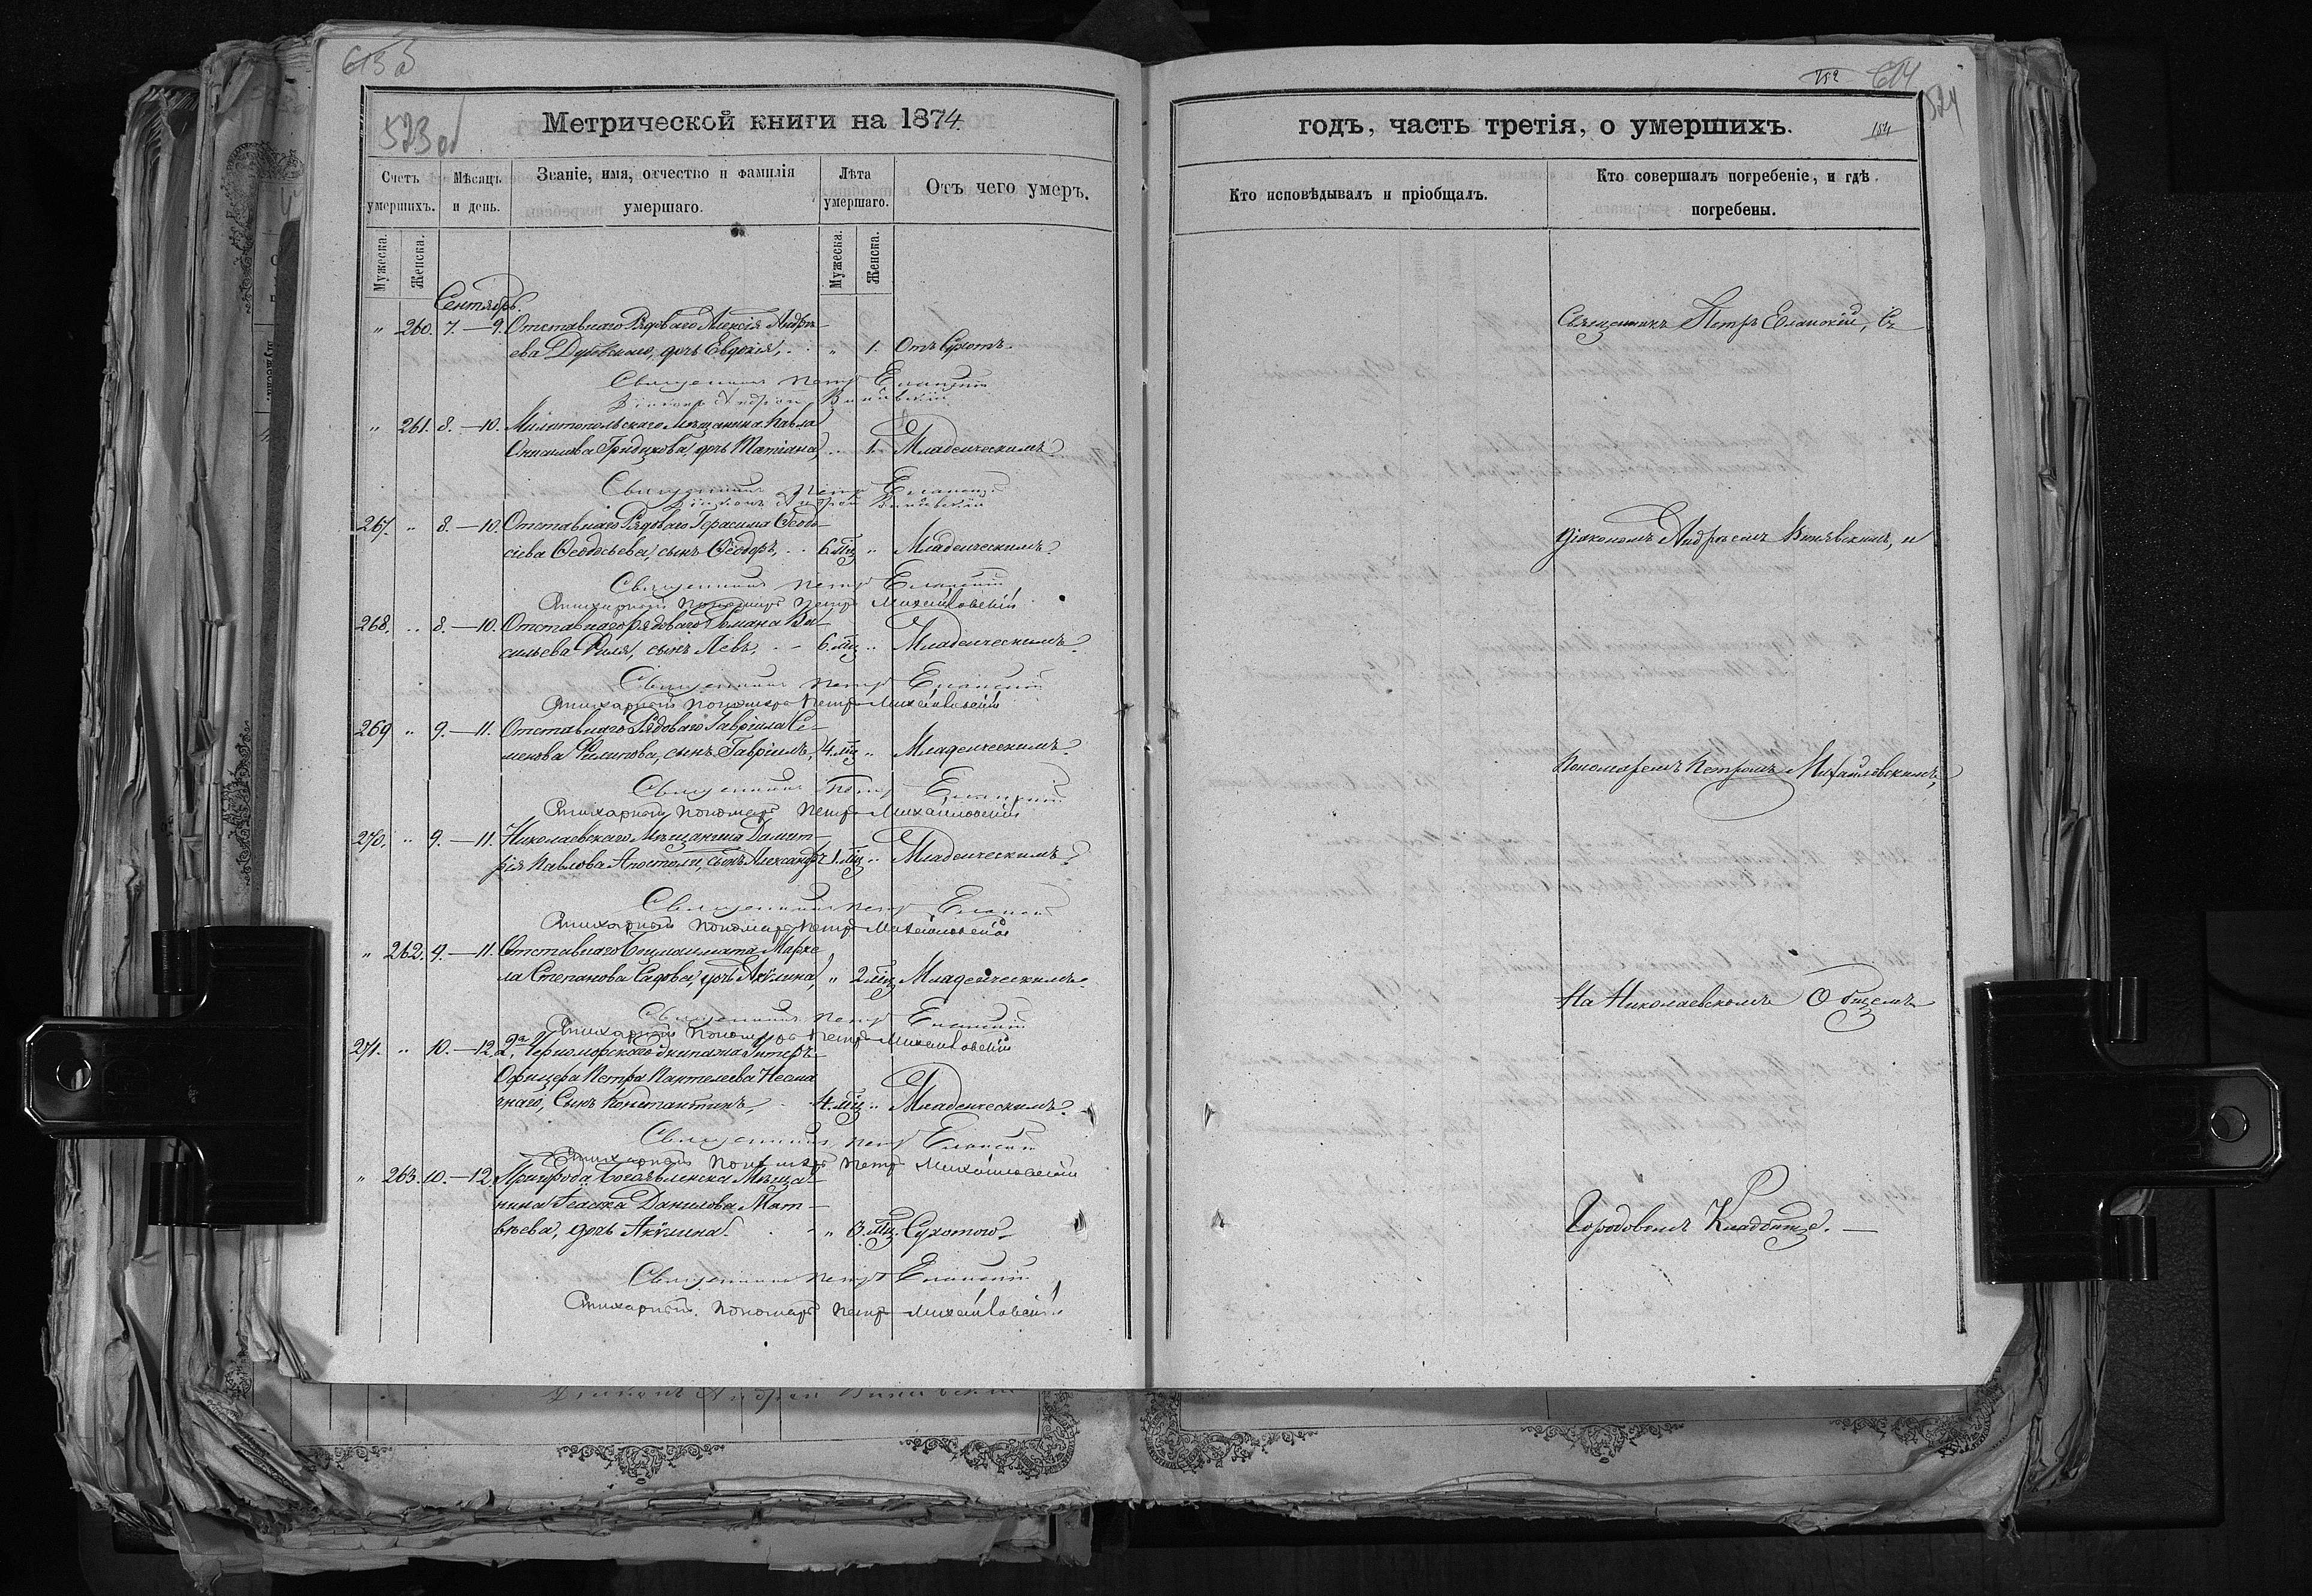 613 об
523 об
Метрической книги на 1874
Счетъ умершихъ.
Мѣсяцъ и день.
Званіе, имя, отчество и фамилія умершаго.
Лѣта умершаго.
Отъ чего умеръ.
Мужеска.
Женска.
Мужеска.
Женска.
Сентябрь.
" 260. 7. — 9. Отставнаго Рядоваго Алексія Андре-
ева Дубовскаго, дочь Евдокія, " 1. Отъ Сухотъ.
Священникъ Петръ Еланскій
Діаконъ Андрей Винявскій
" 261. 8. — 10. Мелитопольскаго Мѣщанина Павла
дочь Татіана, 1. Младенческимъ.
Священникъ Петръ Еланскій
Діаконъ Андрей Винявскій
267. " 8. — 10. Отставнаго Рядоваго Герасима Ѳеодо-
сіева Ѳеодосьева, сынъ Ѳеодоръ, 6. мц. " Младенческимъ.
Священникъ Петръ Еланскій
Стихарный Пономарь Петръ Михайловскій
268. " 8. — 10. Отставнаго рядоваго Романа Ва-
сильева сынъ Левъ, 6. мц. " Младенческимъ.
Священникъ Петръ Еланскій
Стихарный Пономарь Петръ Михайловскій
269 " 9. — 11. Отставнаго Рядоваго Гавріила Се-
менова Филипова, сынъ Гавріилъ, 4. мц. " Младенческимъ.
Священникъ Петръ Еланскій
Стихарный Пономарь Петръ Михайловскій
270. " 9. — 11. Николаевскаго Мѣщанина Димит-
рія Павлова Апостоли, сынъ Александръ 1. мц. " Младенческимъ.
Священникъ Петръ Еланскій
Стихарный Пономарь Петръ Михайловскій
" 262. 9. — 11. Отставнаго Марке-
ла Степанова Садова, дочь Акулина, " 2. мц. Младенческимъ.
Священникъ Петръ Еланскій
Стихарный Пономарь Петръ Михайловскій
271. " 10. — 12. 2го Черноморскаго Экипажа Унтеръ-
Офицера Петра Пантелеева
сынъ Константинъ, 4. мц. " Младенческимъ.
Священникъ Петръ Еланскій
Стихарный Пономарь Петръ Михайловскій
" 263. 10. — 12. Пригорода Богоявленска Мѣща-
нина Данилова Мат-
вѣева, дочь Акулина. " 3. мц. Сухотою.
Священникъ Петръ Еланскій
Стихарный Пономарь Петръ Михайловскій
614
524
годъ, часть третія, о умершихъ.
Кто исповѣдывалъ и пріобщалъ.
Кто совершалъ погребеніе, и гдѣ погребены.
Священникъ Петръ Еланскій, Съ
Діакономъ Андреемъ Винявскимъ, и
Пономаремъ Петромъ Михайловскимъ,
На Николаевскомъ Общемъ
Городовомъ Кладбищѣ. —